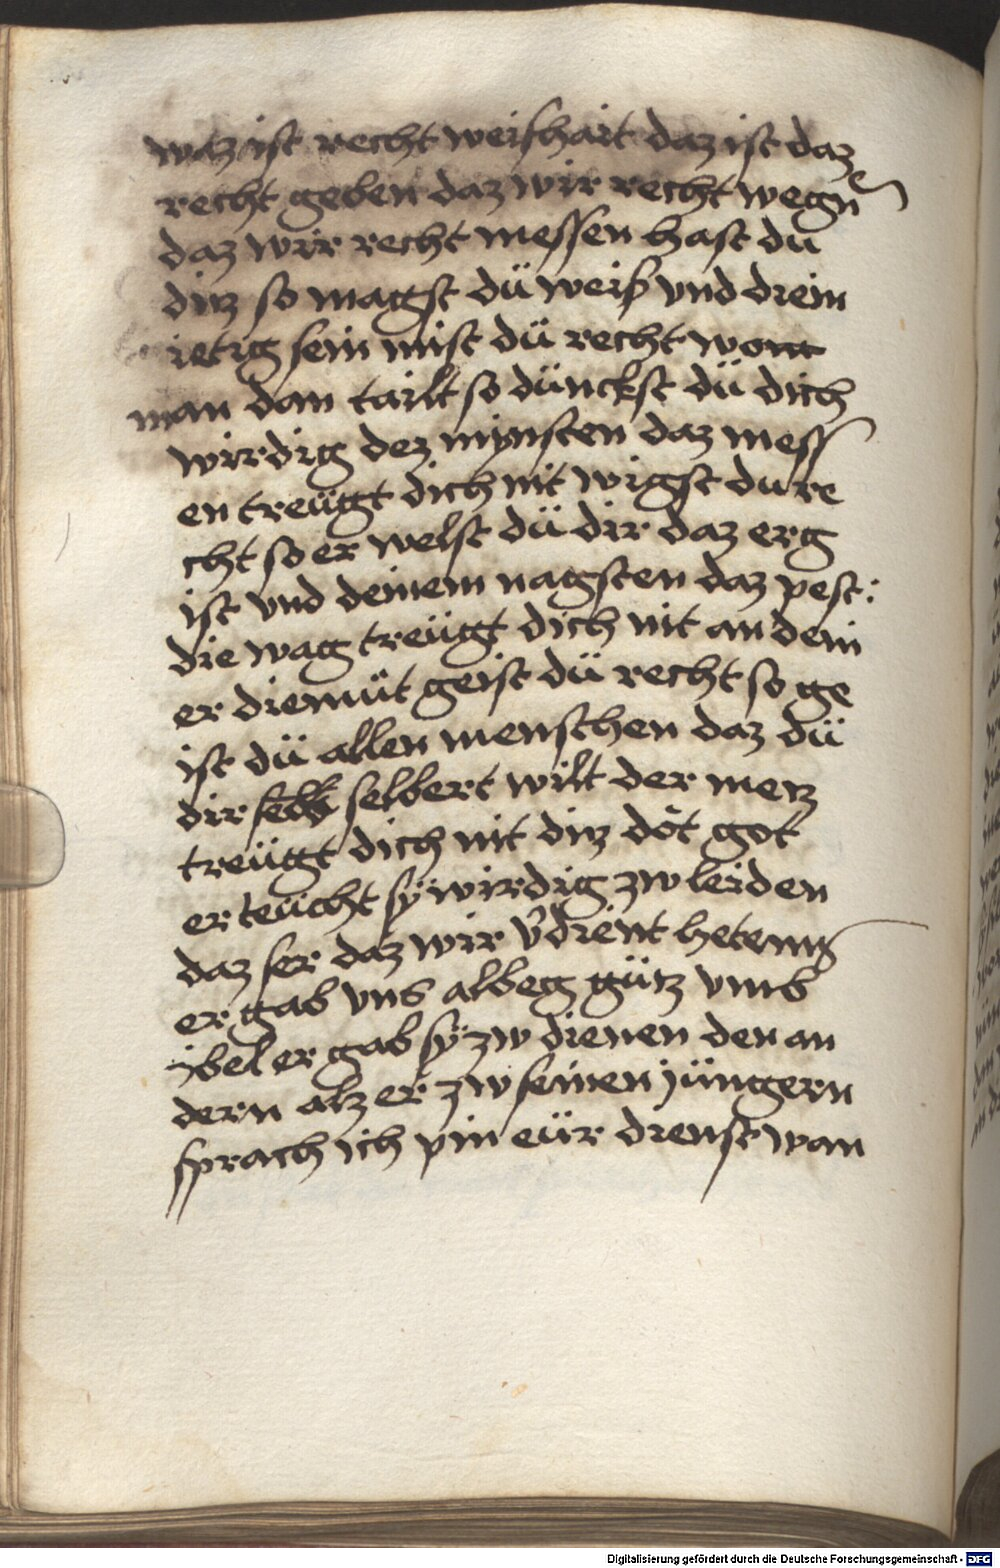 waz ist recht weishait daz ist daz
recht geben daz wir recht wegn
daz wir recht messen hast du
ditz so magst dü weiß vnd diem
ietig sein mist dü recht wont
man dan tailt so dünckst dü dich
wirdig dez mynsten daz mess
en treügt dich nit wigst du re
cht so er welst dü dir daz erg
ist vnd deinem nagsten daz pest :
die wag treügt dich nit an dein
er diemüt geist dü recht so ge
ist dü allen menschen daz dü
dir selb selbert wilt der metz
treügt dich nit ditz döt got
er teücht sÿ wirdig zw leiden
daz ser daz wir v̈dient heten
er gab vns albeg gütz vmb
ÿbel er gab sÿ zw dienen den an
dern alz er zw seinen jüngern
sprach ich pin eür dienst wan
Digitalisierung gefördert durch die Deutsche Forschungsgemeinschaft - DFG